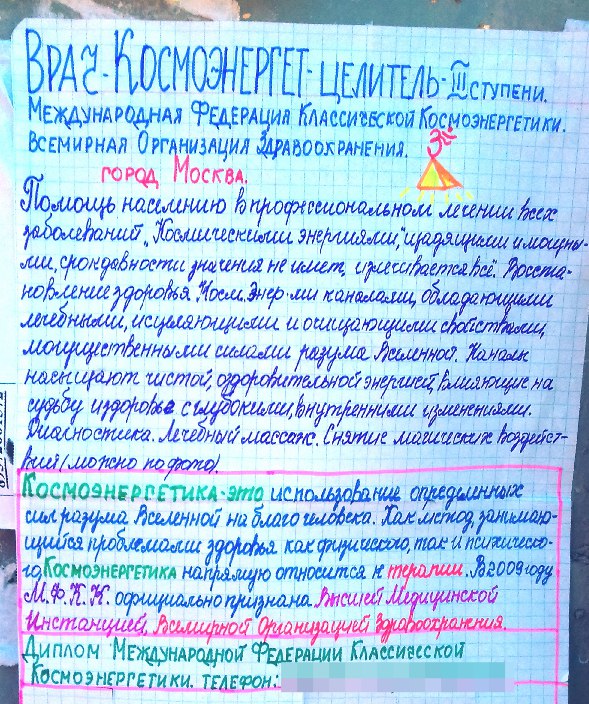 ВРАЧ-КОСМОЭНЕРГЕТ-ЦЕЛИТЕЛЬ-III СТУПЕНИ.
МЕЖДУНАРОДНАЯ ФЕДЕРАЦИЯ КЛАССИЧЕСКОЙ КОСМОЭНЕРГЕТИКИ.
ВСЕМИРНАЯ ОРГАНИЗАЦИЯ ЗДРАВООХРАНЕНИЯ.
ГОРОД МОСКВА.
Помощь населению в профессиональном лечении всех
заболеваний „Космическими энергиями," щадящими и мощны-
ми, срок давности значения не имет, излечивается всё. Восста-
новление здоровья. Косм. Энер-ми каналами, обладающими
лечебными, исцеляющими и очищающими свойствами,
могущественными силами разума Вселенной. Каналы
насыщают чистой, оздоровительной энергией, влияющие на
судьбу и здоровье с глубокими, внутренними изменениями.
Диагностика. Лечебный массаж. Снятие магических воздейст-
вий (можно по фото).
КОСМОЭНЕРГЕТИКА-ЭТО использование определенных
сил разума Вселенной на благо человека. Как метод, занимаю-
щийся проблемами здоровья как физического, так и психическо-
го, КОСМОЭНЕРГЕТИКА напрямую относится к терапии. В 2009 году
М.Ф.К.К. официально признана Высшей Медицинской
Инстанцией, Всемирной Организацией Здравоохранения.
ДИПЛОМ МЕЖДУНАРОДНОЙ ФЕДЕРАЦИИ КЛАССИЧЕСКОЙ
КОСМОЭНЕРГЕТИКИ. ТЕЛЕФОН: